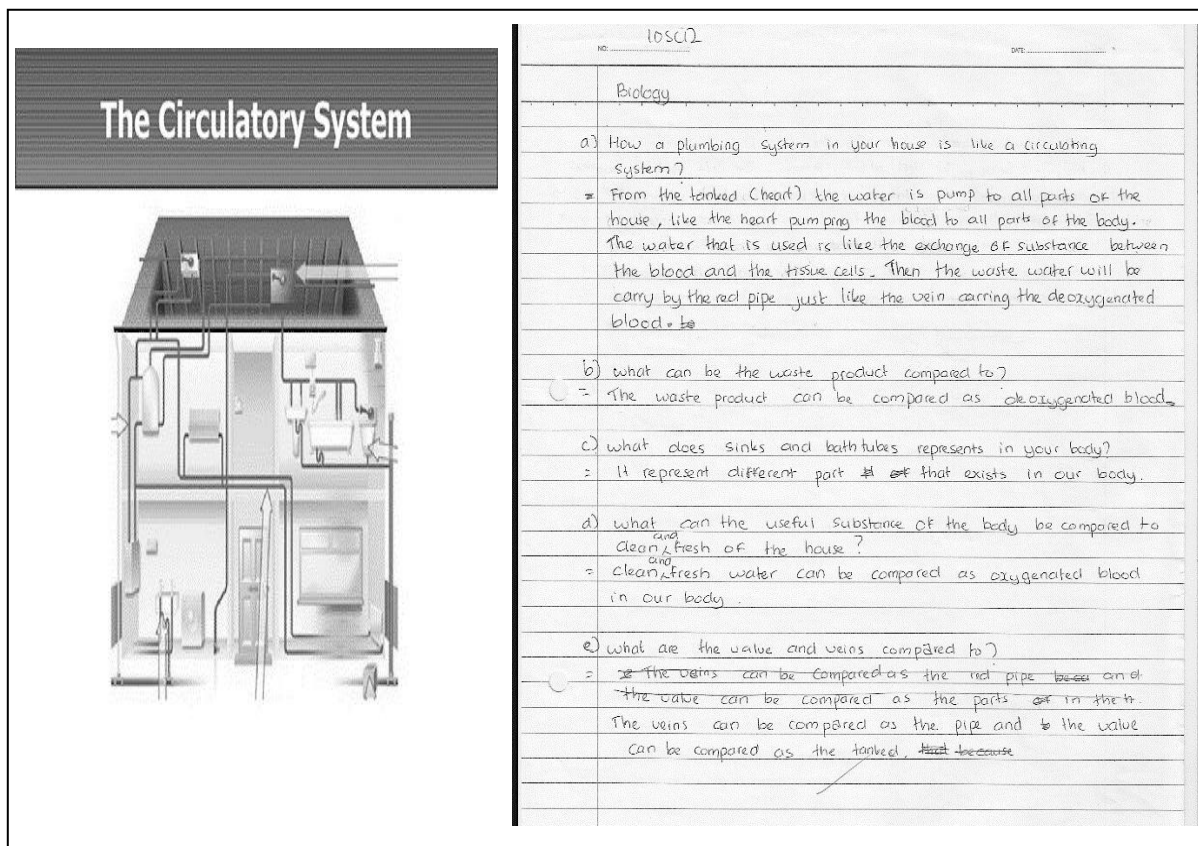 The Circulatory System
10sci2
NO:
DATE:
Biology
a) How a plumbing system in your house is like a circulating
system?
= From the tanked (heart) the water is pump to all parts of the
house, like the heart pumping the blood to all parts of the body.
The water that is used is like the exchange of substance between
the blood and the tissue cells. Then the waste water will be
carry by the red pipe just like the vein carring the deoxygenated
blood. to
b) what can be the waste product compared to?
= The waste product can be compared as deoxygenated blood.
c) what does sinks and bath tubes represents in your body?
= It represent different part of that exists in our body.
d) what can the useful substance of the body be compared to
clean and fresh of the house?
= clean and fresh water can be compared as oxygenated blood
in our body.
e) what are the value and veins compared to?
= The veins can be compared as the red pipe and
the value can be compared as the parts of in the h.
The veins can be compared as the pipe and the value
can be compared as the tanked. that because